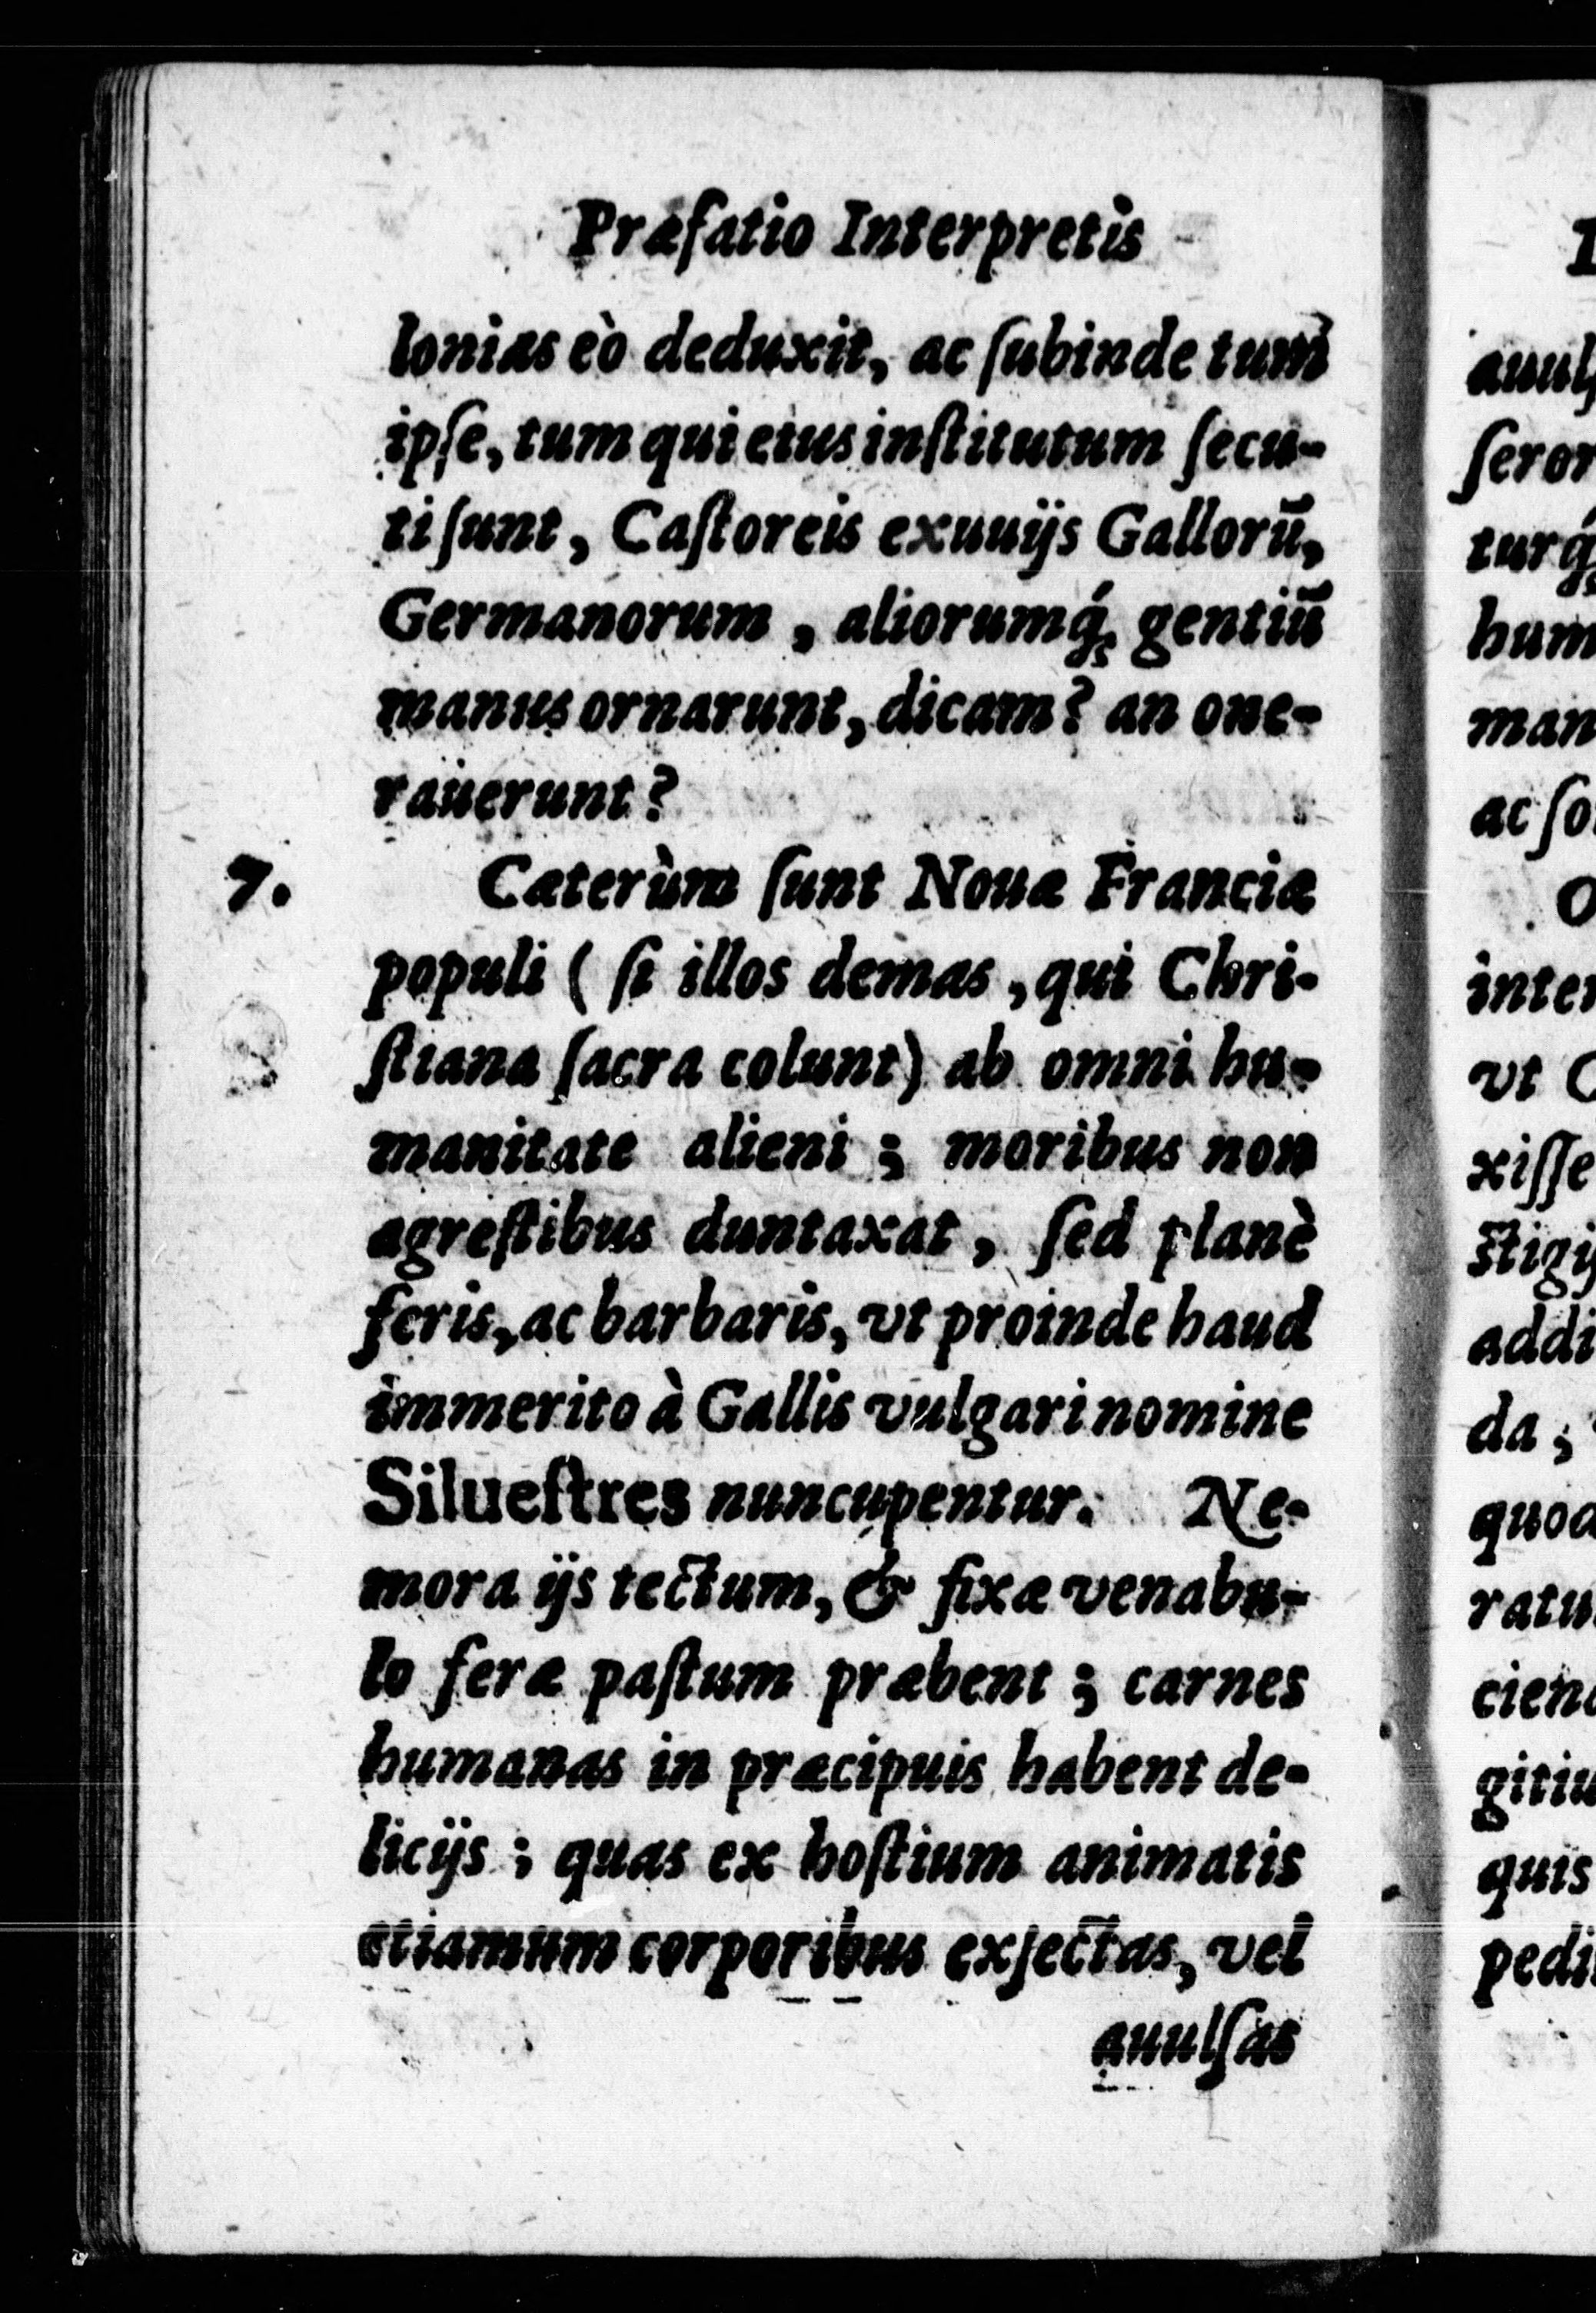 Præfatio Interpretis
lonias eò deduxit, ac ſubinde tum
ipſe, tum qui eius inſtitutum ſecu-
ti ſunt, Caſtoreis exuuijs Gallorū,
Germanorum, aliorumq́; gentiū
manus ornarunt, dicam? an one-
rauerunt?
7.
Cæterùm ſunt Nouæ Franciæ
populi (ſi illos demas, qui Chri-
ſtiana ſacra colunt) ab omni hu-
manitate alieni; moribus non
agreſtibus duntaxat, ſed planè
feris, ac barbaris, vt proinde haud
immerito à Gallis vulgari nomine
Silueſtres nuncupentur. Ne-
mora ijs tectum, & fixæ venabu-
lo feræ paſtum præbent; carnes
humanas in præcipuis habent de-
licijs; quas ex hoſtium animatis
etiamnum corporibus exſectas, vel
auulſas